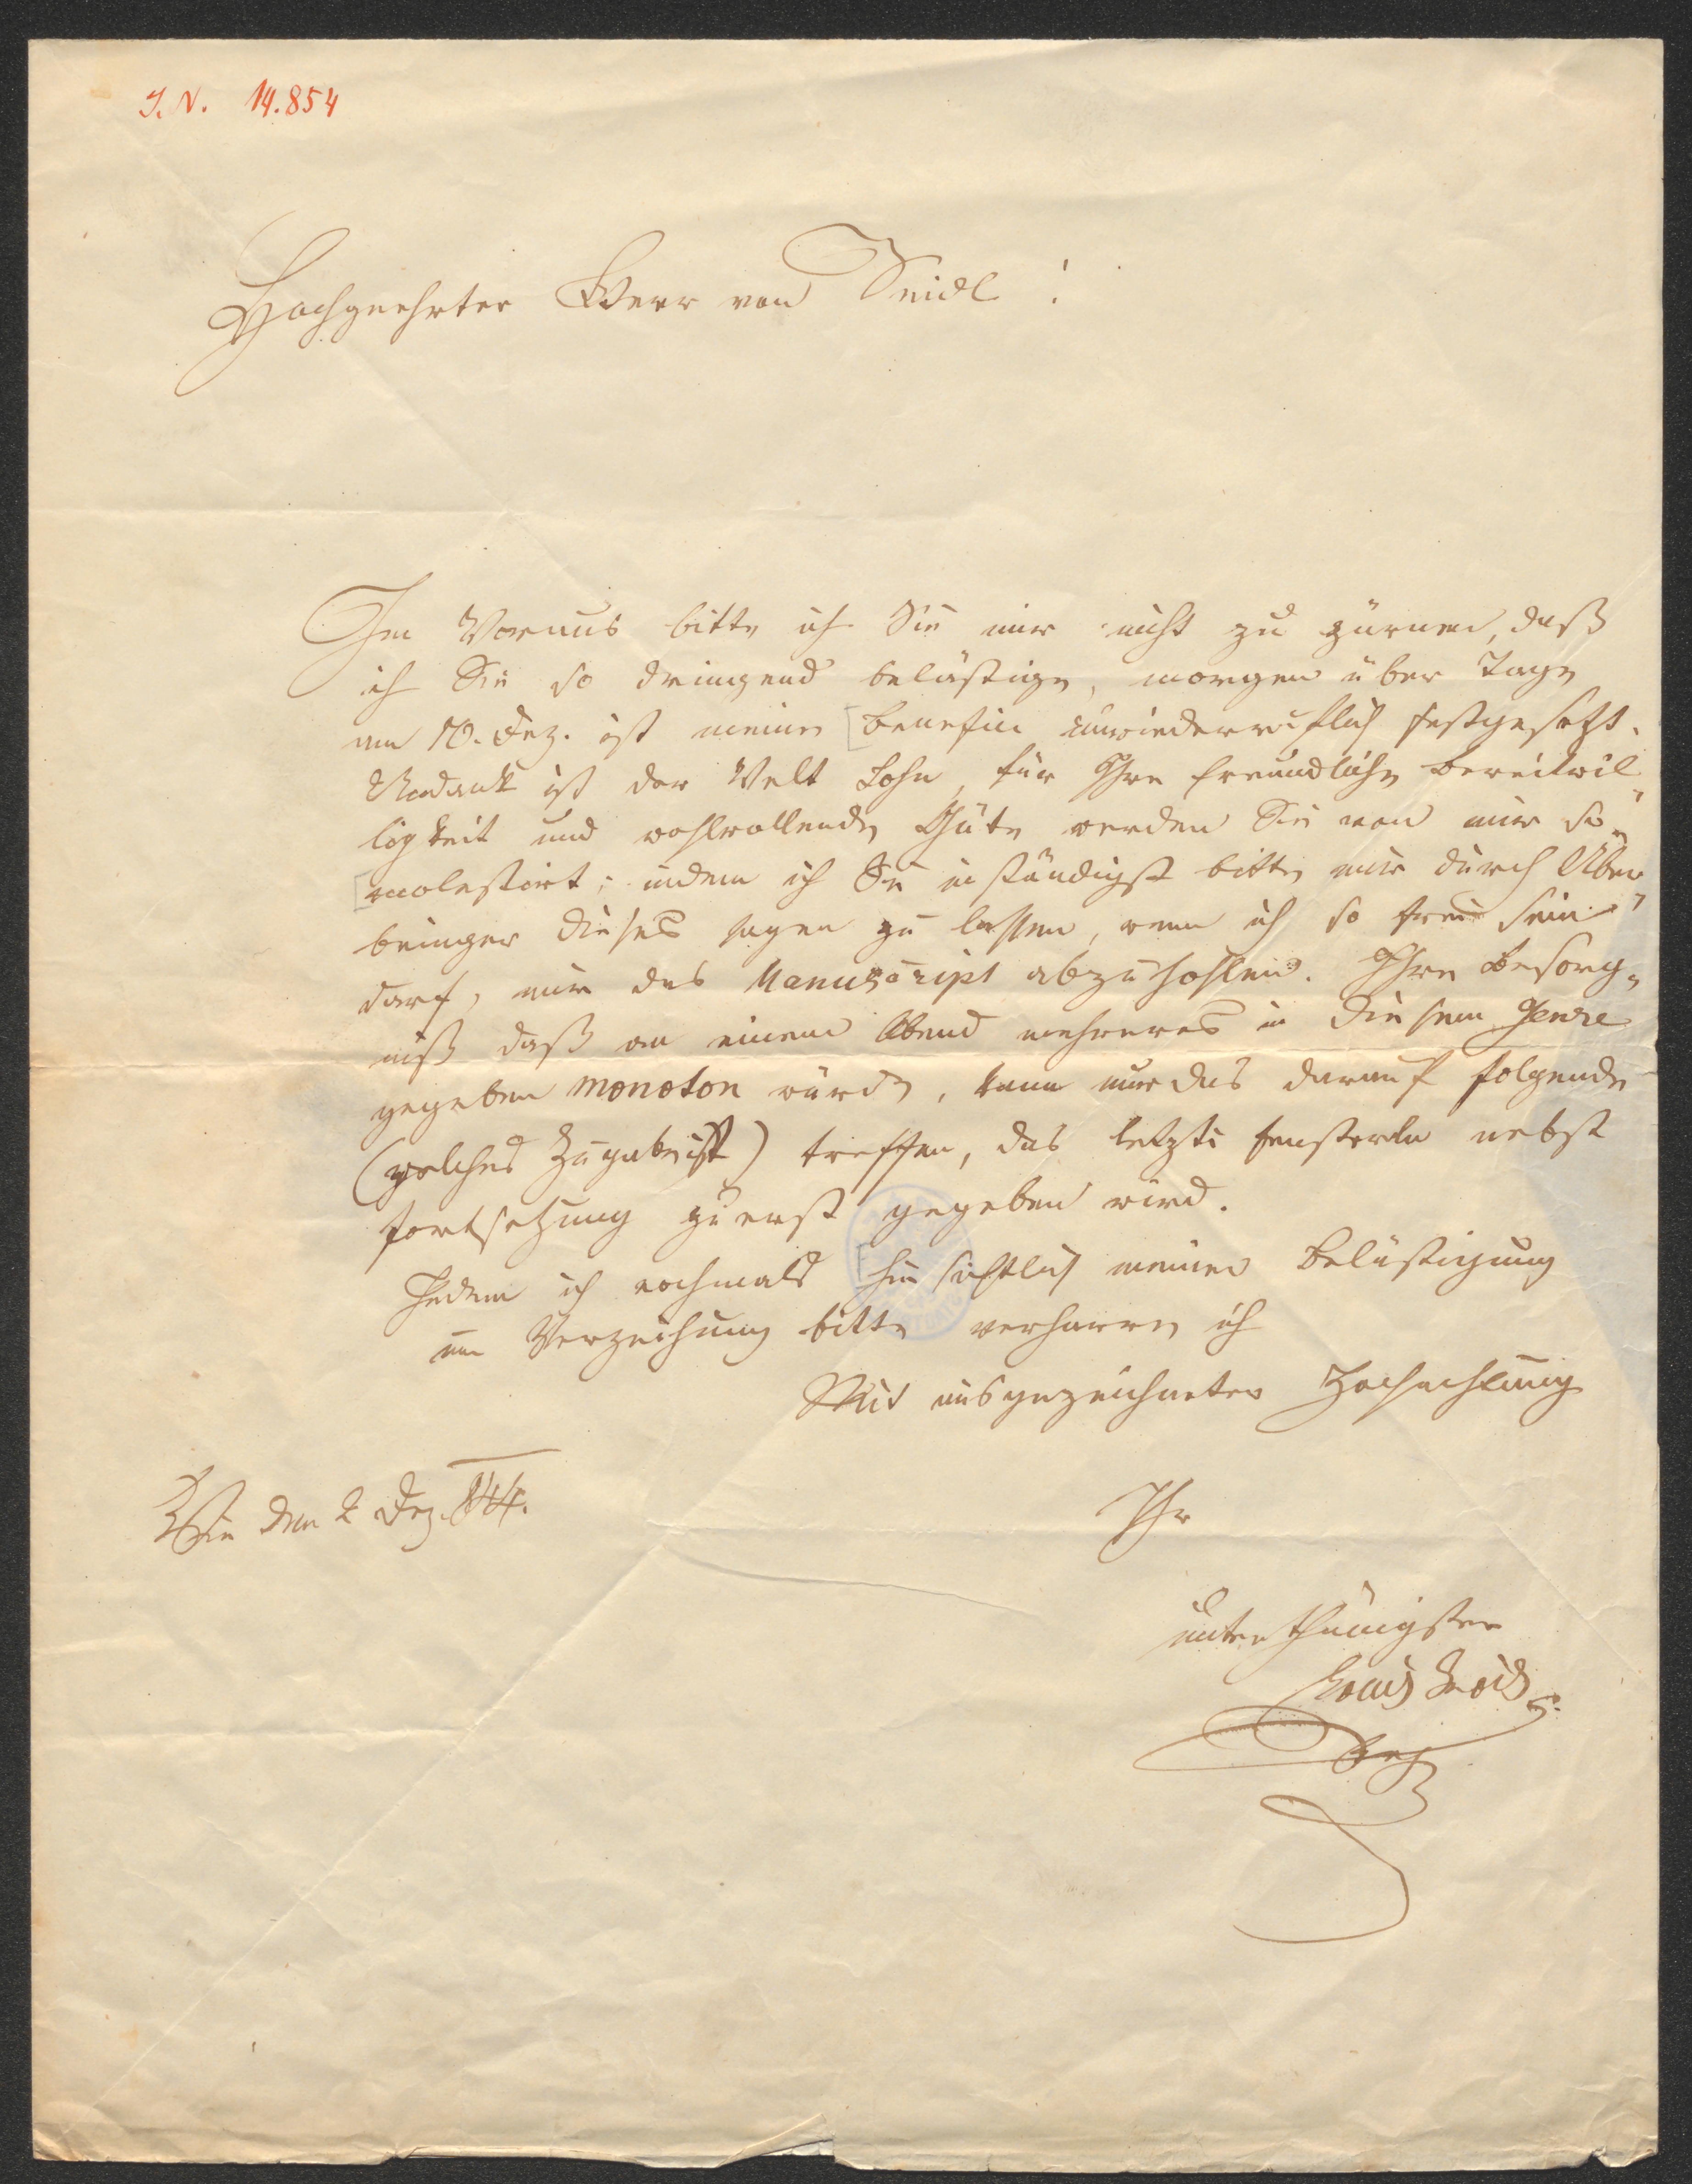 I.N. 14.854
Hochgeehrter Herr von Seidl!
Im Voraus bitte ich Sie mir nicht zu zürnen, daß
ich Sie so dringend belästige, morgen über Tage
am 10. Dez. ist meine Benefice unwiederruflich festgesetzt.
Undank ist der Welt Lohn, für Ihre freundliche Bereitwil„
ligkeit und wohlwollende Güte werden Sie von mir so
molestirt; indem ich Sie inständigst bitte mir durch Über„
bringer dieses sagen zu lassen, wenn ich so frei sein
darf, mir das Manuscript abzuhohlen. Ihre Besorg„
niß daß an einem Abend mehreres in diesem Genre
gegeben monoton würde, kann nur das darauf folgende
(welches Zugabe ist) treffen, das letzte Fensterln nebst
Fortsetzung zuerst gegeben wird.
Indem ich nochmals hinsichtlich meiner Belästigung
um Verzeihung bitte verharre ich
Mit ausgezeichneter Hochachtung
Wien den 2 Dez. 844.
Ihr
unterthänigster